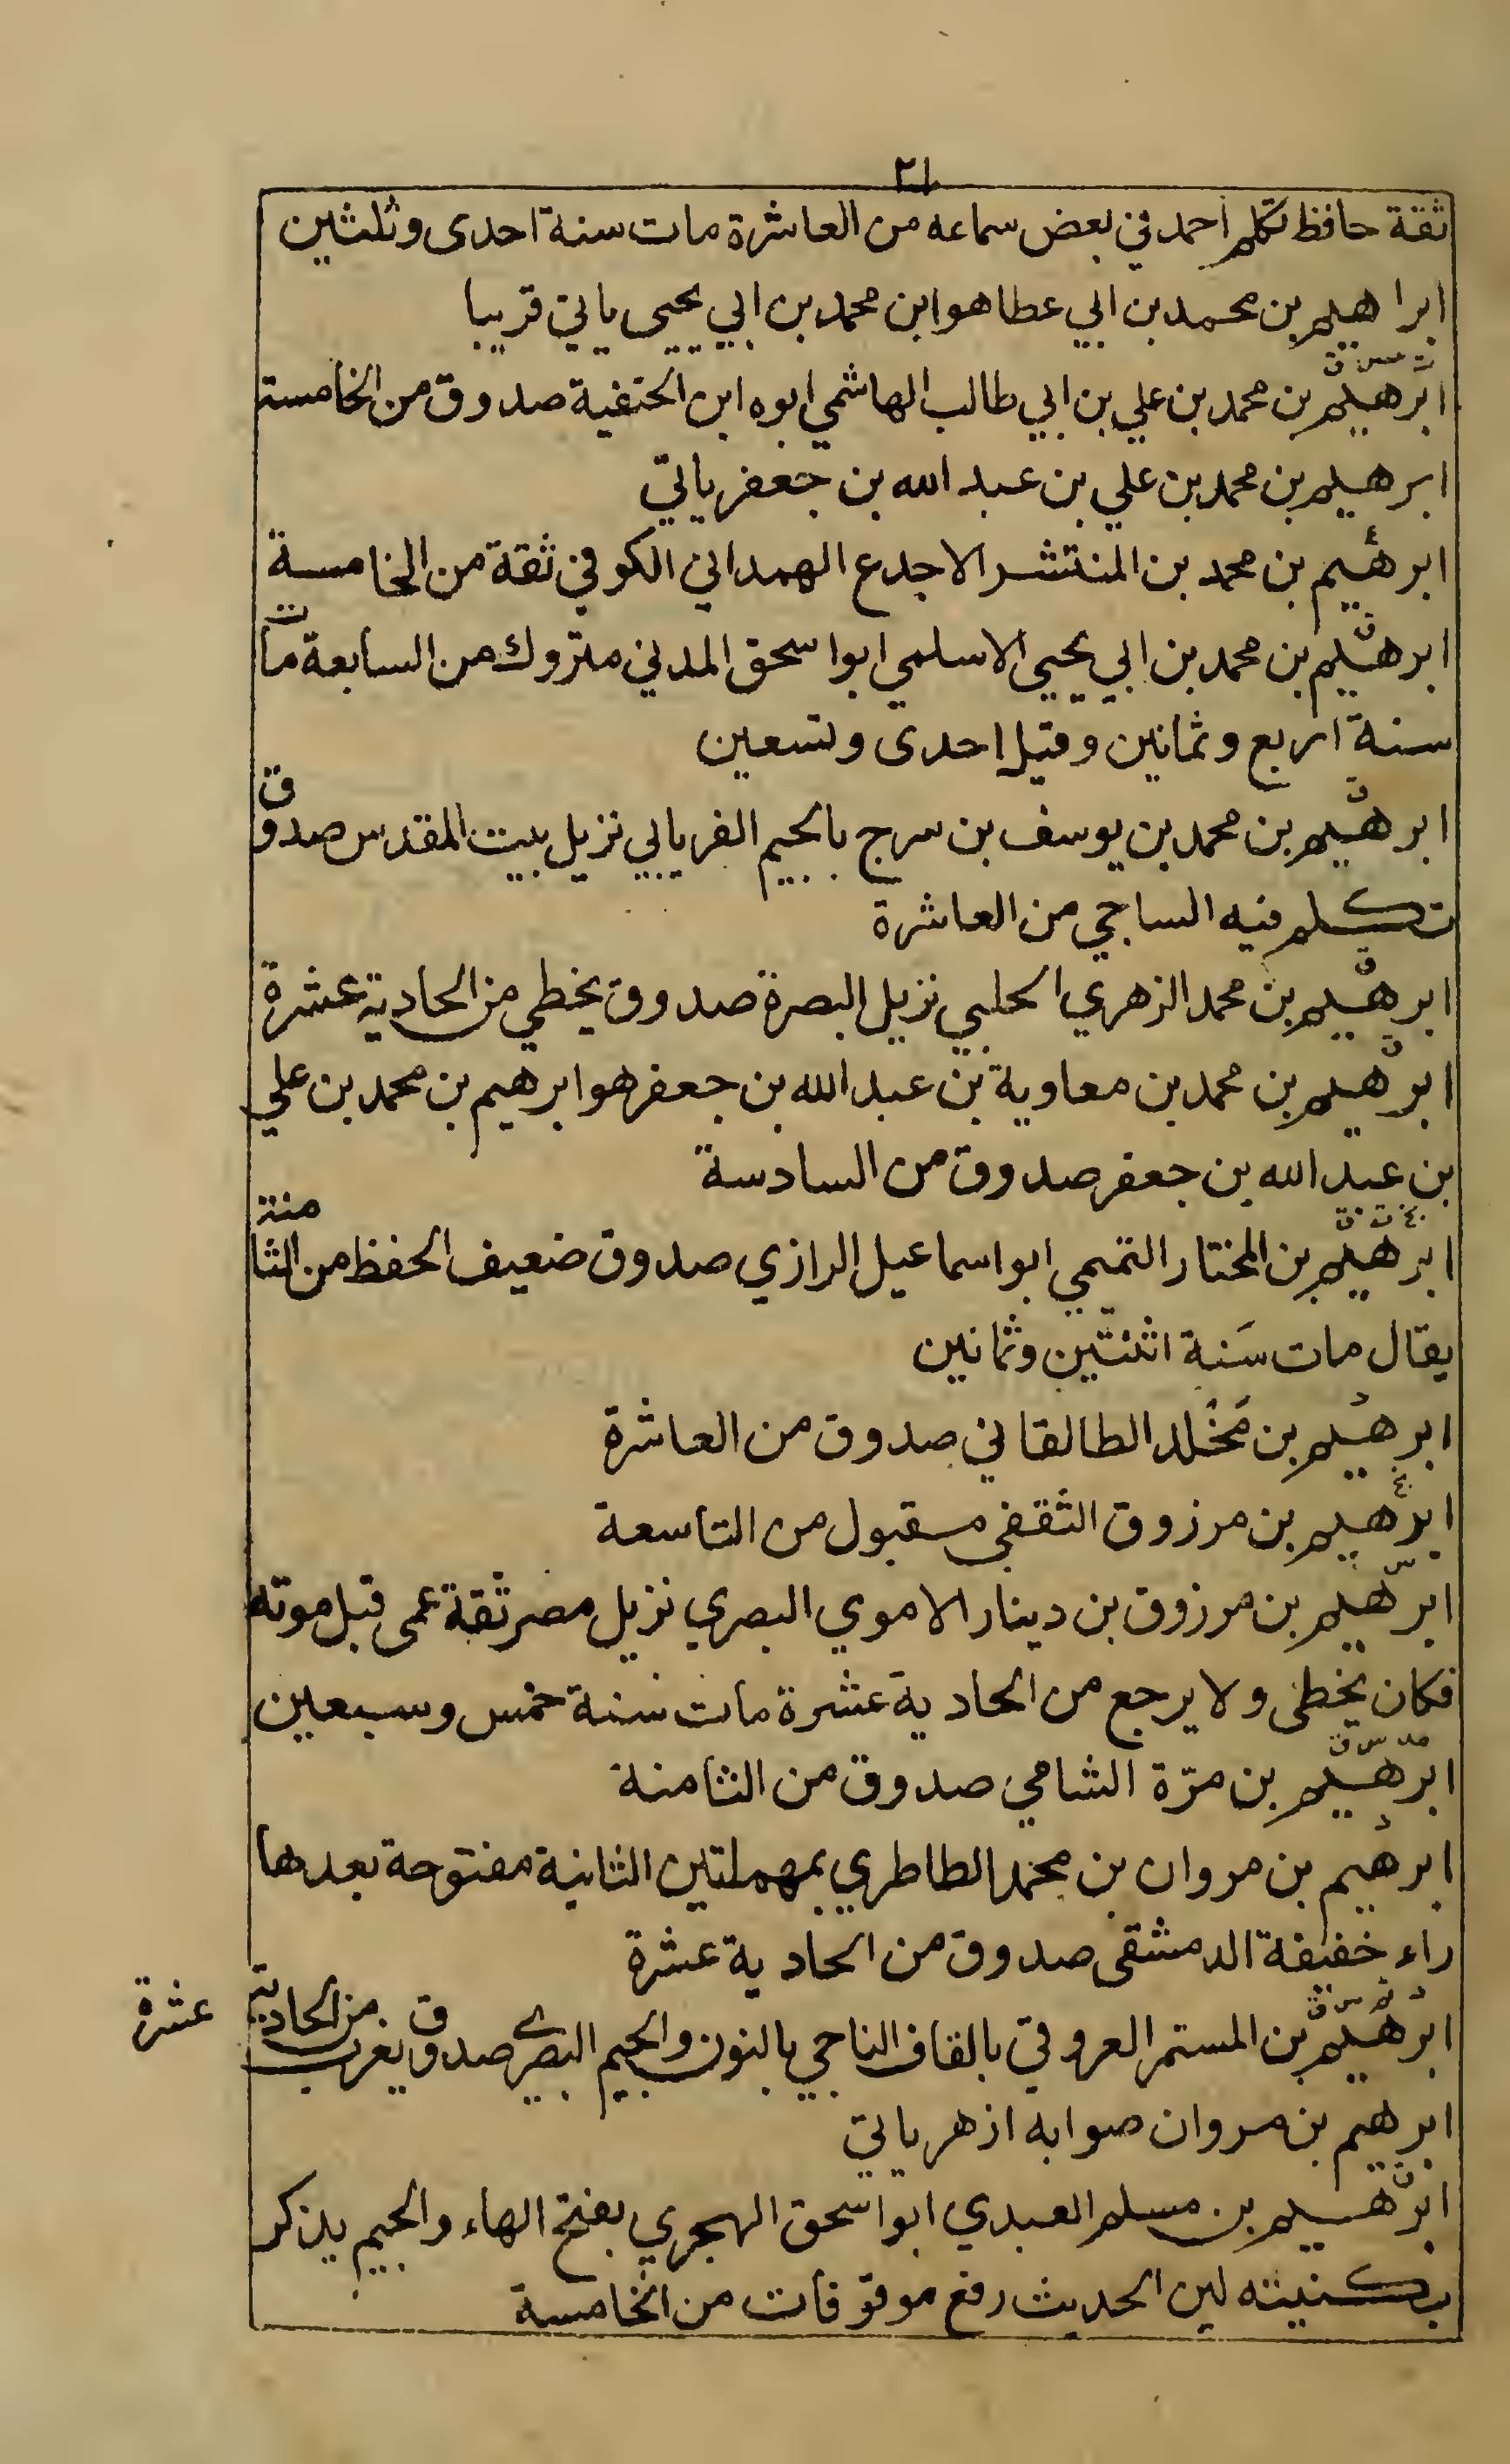 ٢١
ثقة حافظ تكلم احمد في بعض سماعه من العاشرة مات سنة احدى وثلثين
ابراهيم بن محمد بن ابي عطا هو ابن محمد بن ابي يحيى ياتي قريبا
ت عس ق
ابرهيم بن محمد بن علي بن ابي طالب الهاشمي ابوه ابن الحنفية صدوق من الخامسة
ابرهيم بن محمد بن علي بن عبد الله بن جعفر ياتي
ع
ابرهيم بن محمد بن المنتشر الاجدع الهمداني الكوفي ثقة من الخامسة
ق
ابرهيم بن محمد بن ابي يحيى الاسلمي ابو اسحق المدني متروك من السابعة مات
سنة اربع وثمانين وقيل احدى وتسعين
ق
ابرهيم بن محمد بن يوسف بن سرج بالجيم الفريابي نزيل بيت المقدس صدوق
تكلم فيه الساجي من العاشرة
ق
ابرهيم بن محمد الزهري الحلبي نزيل البصرة صدوق يخطي من الحادية عشرة
ق
ابرهيم بن محمد بن معاوية بن عبد الله بن جعفر هو ابرهيم بن محمد بن علي
بن عبد الله بن جعفر صدوق من السادسة
بخ ت ق
ابرهيم بن المختار التميمي ابو اسماعيل الرازي صدوق ضعيف الحفظ من الثامنة
يقال مات سَنة اثنتين وثمانين
د
ابرهيم بن مَخْلد الطالقاني صدوق من العاشرة
بخ
ابرهيم بن مرزوق الثقفي مقبول من التاسعة
س
ابرهيم بن مرزوق بن دينار الاموي البصري نزيل مصر ثقة عمى قبل موته
فكان يخطئ ولا يرجع من الحادية عشرة مات سنة خمس وسبعين
مد س ق
ابرهيم بن مرّة الشامي صدوق من الثامنة
د
ابرهيم بن مروان بن محمد الطاطري بمهملتين الثانية مفتوحة بعدها
راء خفيفة الدمشقي صدوق من الحادية عشرة
د تم س ق
ابرهيم بن المستمر العروقي بالقاف الناجي بالنون والجيم البصري صدوق يغرب من الحادية عشرة
ابرهيم بن مروان صوابه ازهر ياتي
ق
ابرهيم بن مسلم العبدي ابو اسحق الهجري بفتح الهاء والجيم يذكر
بكنيته لين الحديث رفع موقوفات من الخامسة